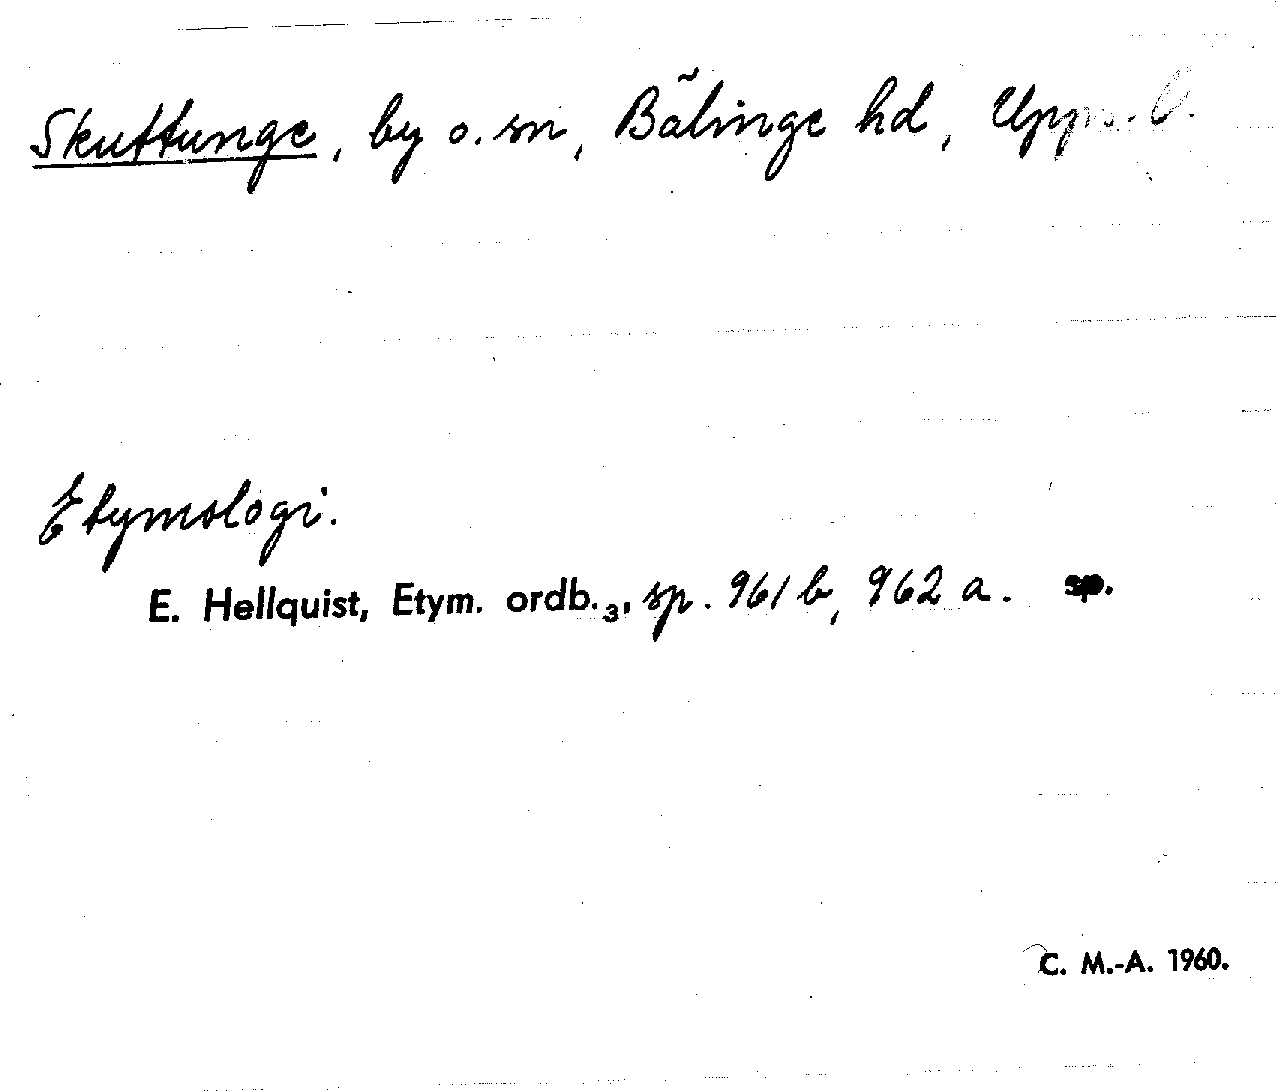 Skuttunge, by o. sn, Bälinge hd, Upps. l.
Etymologi.
E. Hellquist, Etym. ordb.₃, sp. 961 b, 962 a. sp.
C. M.-A. 1960.